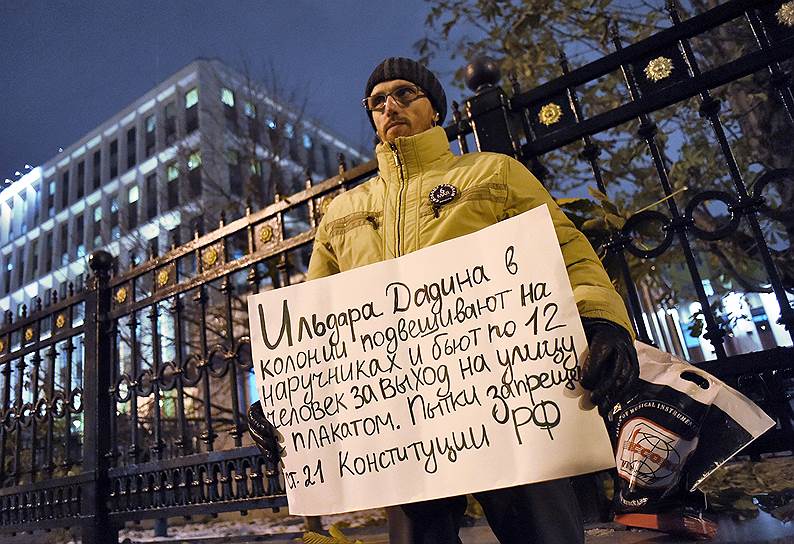 Ильдара Дадина в
колонии подвешивают на
наручниках и бьют по 12
человек за выход на улицу
плакатом. Пытки запрещ
ст. 21 Конституции РФ
OF MUSICAL INSTRUMENT